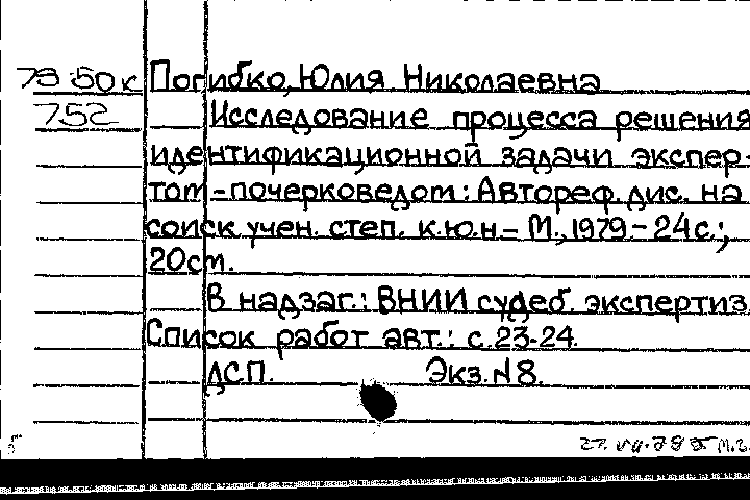 79-50к Погибко, Юлия Николаевна
752 Исследование процесса решения
идентификационной задачи экспер-
том-почерковедом: Автореф. дис. на
соиск учен. степ. к.ю.н.- М., 1979.- 24с.;
20см.
В надзаг.: ВНИИ судеб. экспертиз.
Список работ авт.: с.23-24.
ДСП. Экз.№8.